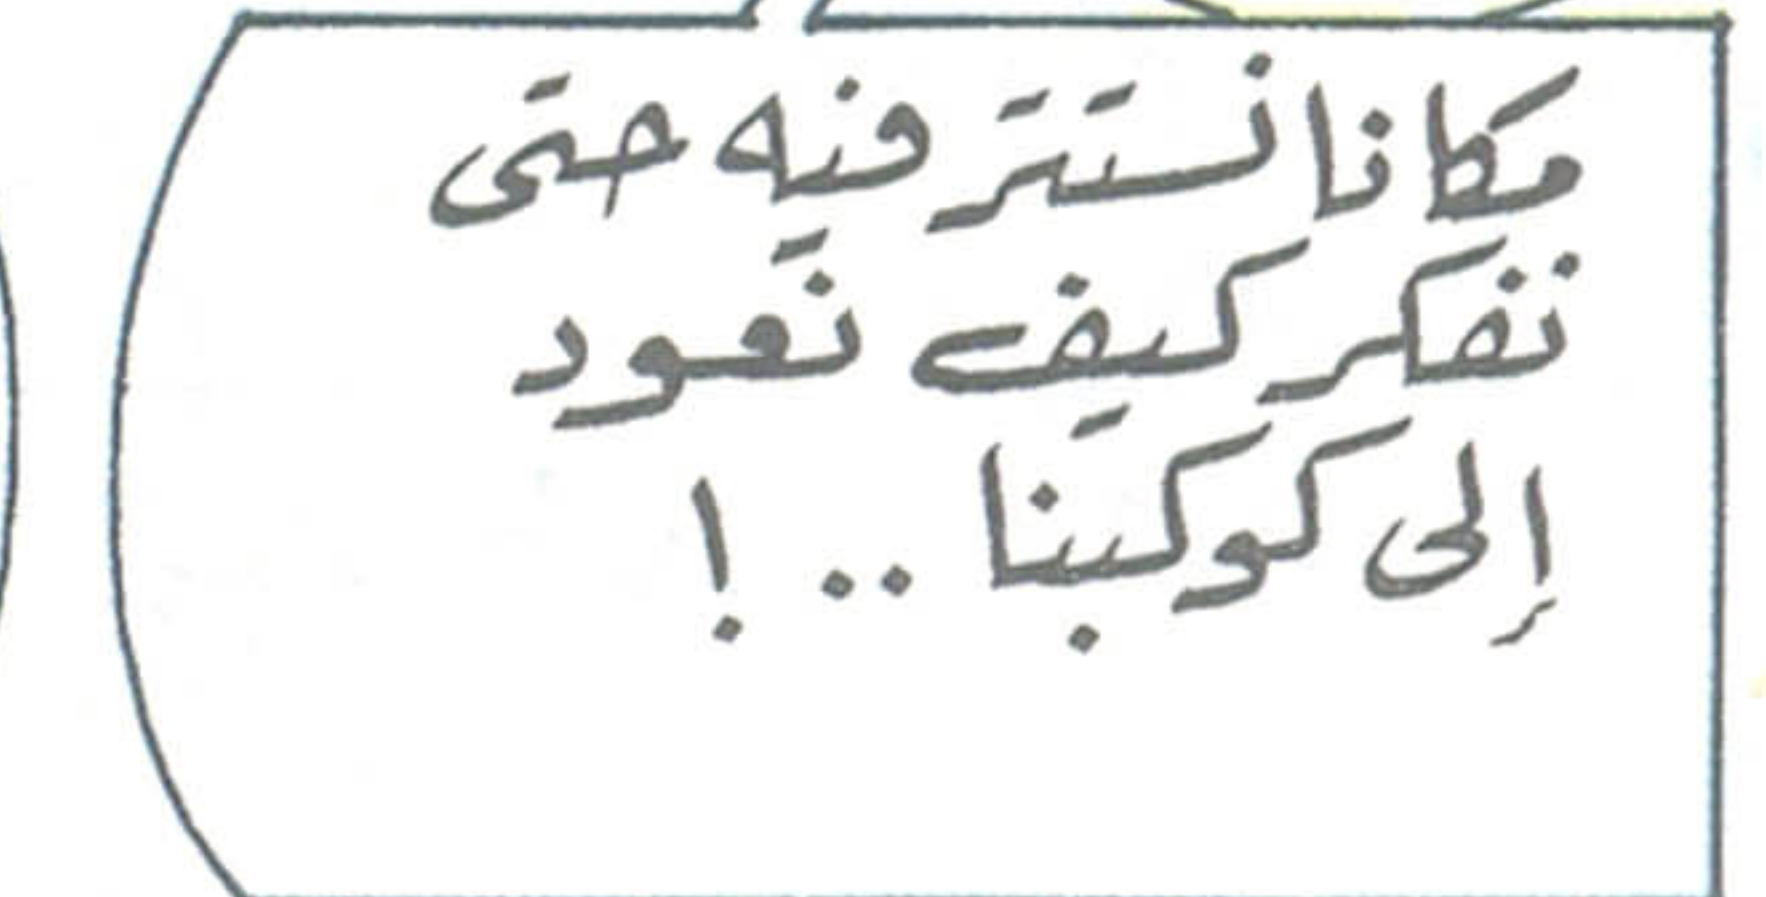 مكانا نستتر فيه حتى
نفكر كيف نعود
إلى كوكبنا ..!